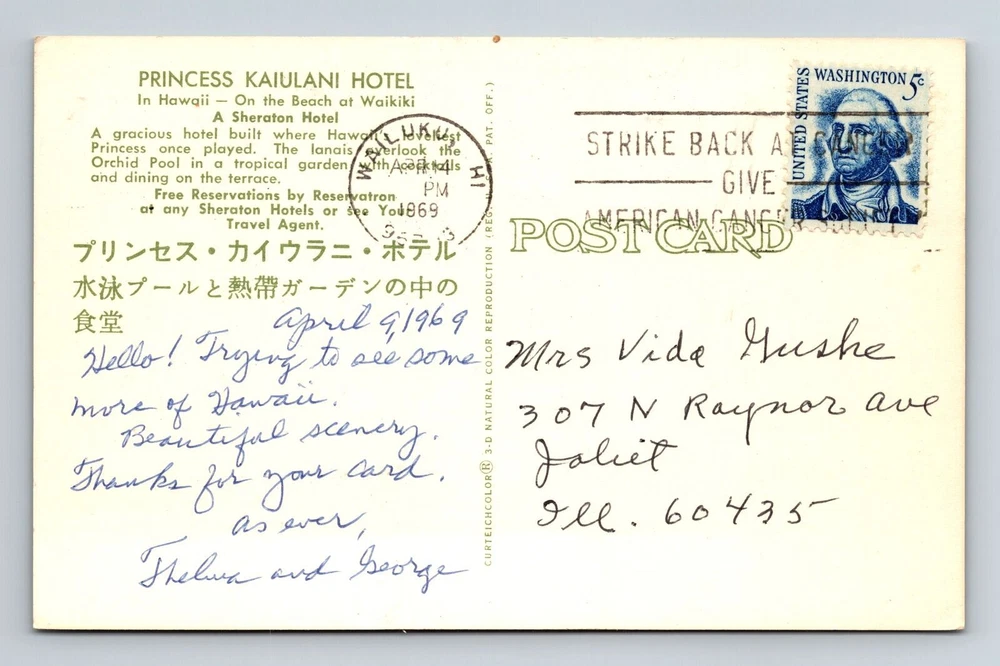 PRINCESS KAIULANI HOTEL
In Hawaii — On the Beach at Waikiki
A Sheraton Hotel
A gracious hotel built where Hawaii's loveliest
Princess once played. The lanais overlook the
Orchid Pool in a tropical garden with cocktails
and dining on the terrace.
Free Reservations by Reservatron
at any Sheraton Hotels or see Your
Travel Agent.
プリンセス・カイウラニ・ホテル
水泳プールと熱帶ガーデンの中の
食堂
April 9, 1969
Hello! Trying to see some
more of Hawaii.
Beautiful scenery.
Thanks for your card.
as ever,
Thelma and George
CURTEICHCOLOR® 3-D NATURAL COLOR REPRODUCTION (REG. U.S.A. PAT. OFF.)
WAILUKU, HI
APR 14
PM
1969
STRIKE BACK AT CANCER
GIVE
AMERICAN CANCER SOCIETY
UNITED STATES
WASHINGTON 5c
POST CARD
Mrs Vida Gushe
307 N Raynor ave
Joliet
Ill. 60435